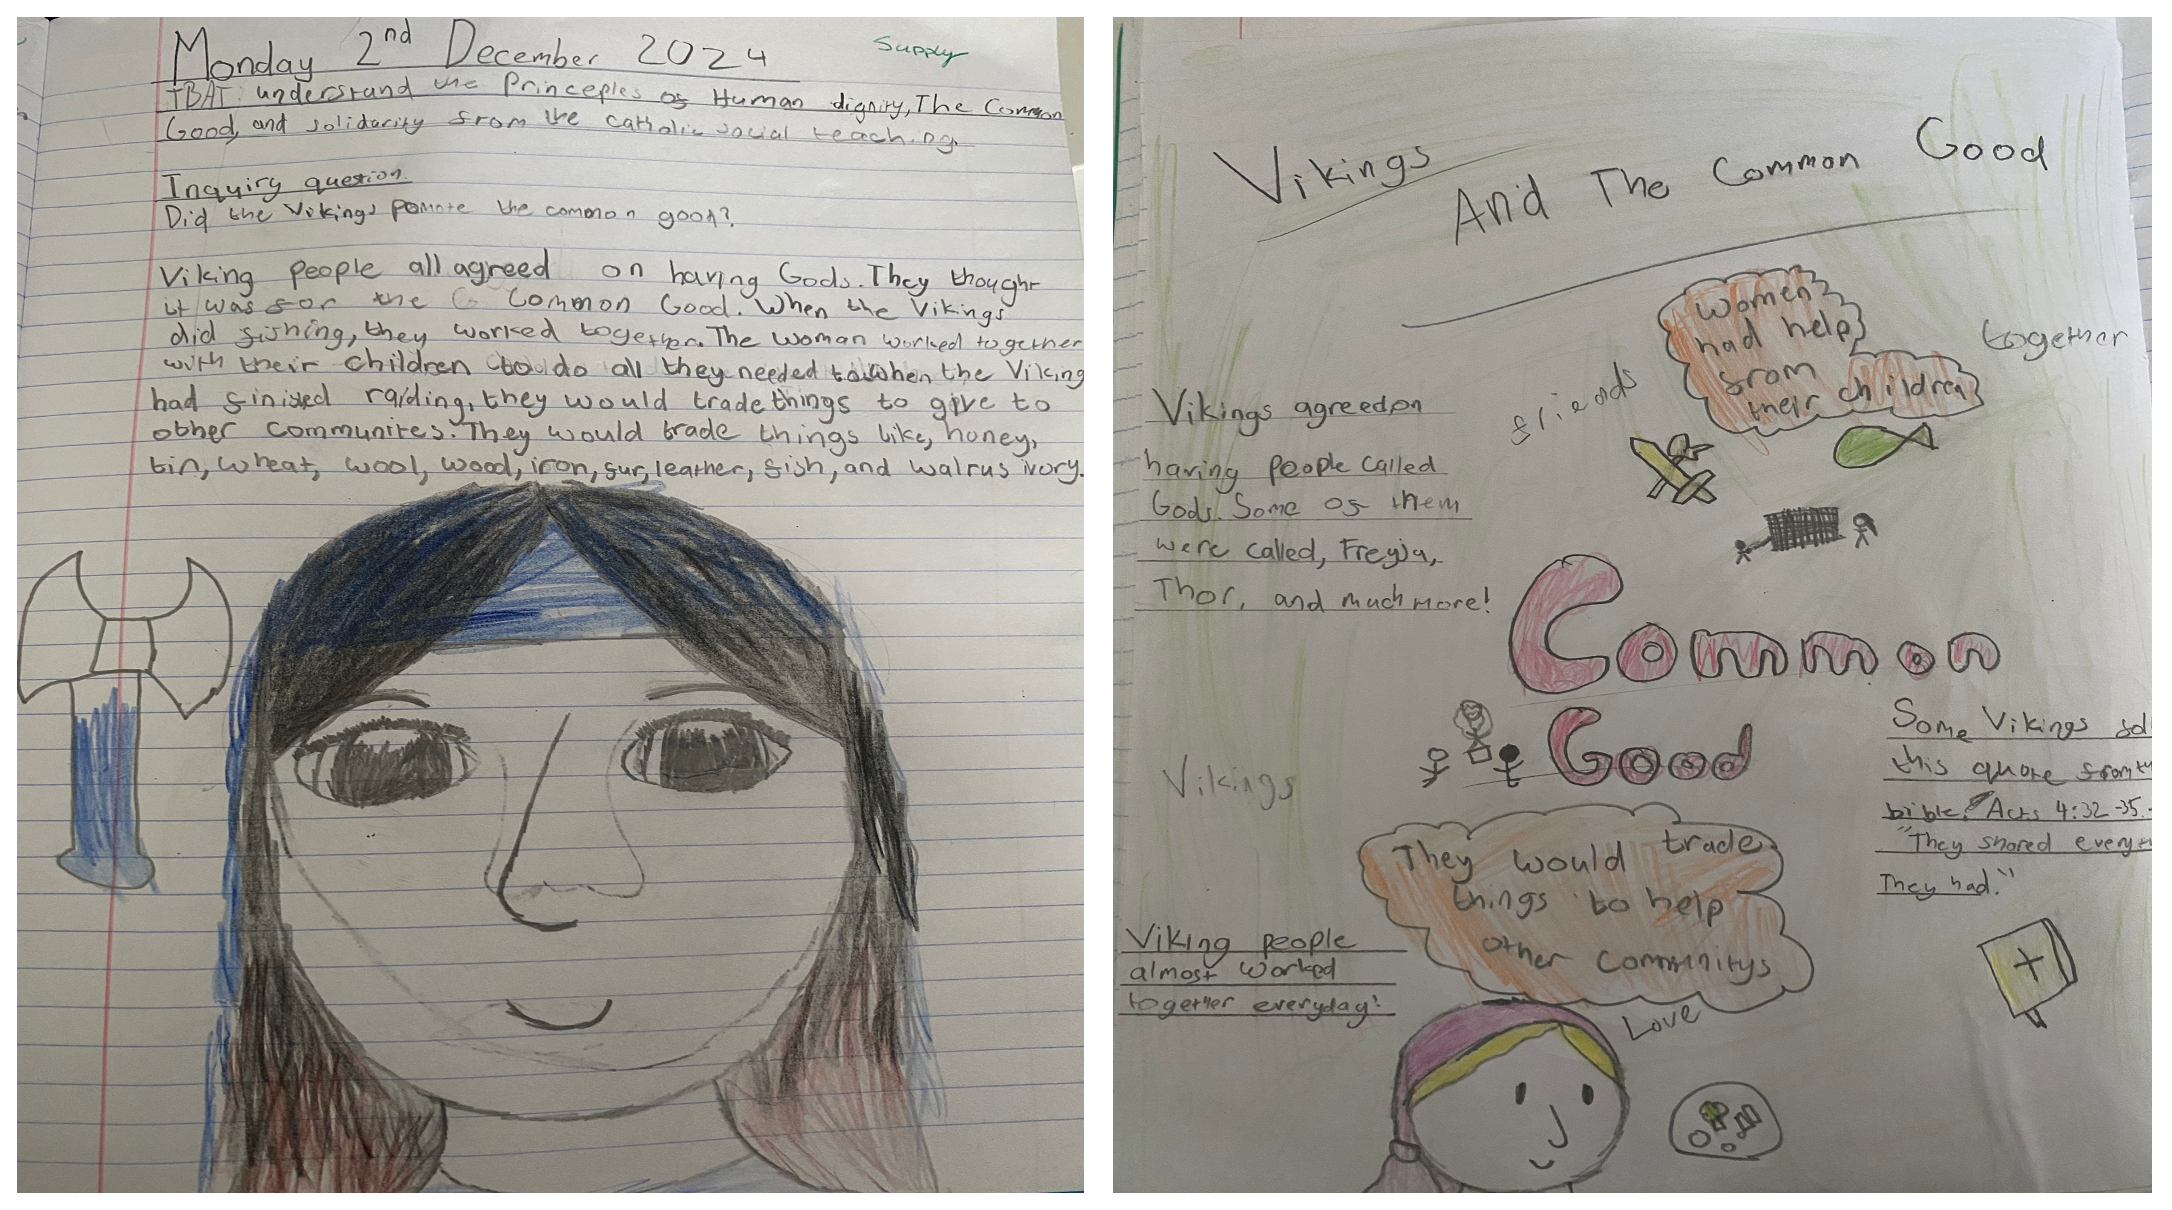 Monday 2nd December 2024
Supply
TBAT: understand the Princeples of Human dignity, The Common
Good, and solidarity from the catholic social teaching.
Inquiry question.
Did the Vikings pomote the common good?
Viking people all agreed on having Gods. They thought
it was for the Common Good. When the Vikings
did fishing, they worked together. The woman worked together
with their children to do all they needed to. When the Viking
had finised raiding, they would trade things to give to
other communites. They would trade things like, honey,
tin, wheat, wool, wood, iron, fur, leather, fish, and walrus ivory.
Vikings And The Common Good
Women
had help
from
their children
together
friends
Vikings agreed on
having people called
Gods. Some of them
were called, Freyja,
Thor, and much more!
Common
Good
Vikings
Some Vikings
this quote from
bible. Acts 4:32-35.
"They shared
They had."
They would trade
things to help
other communitys
Viking people
almost worked
together everyday!
Love